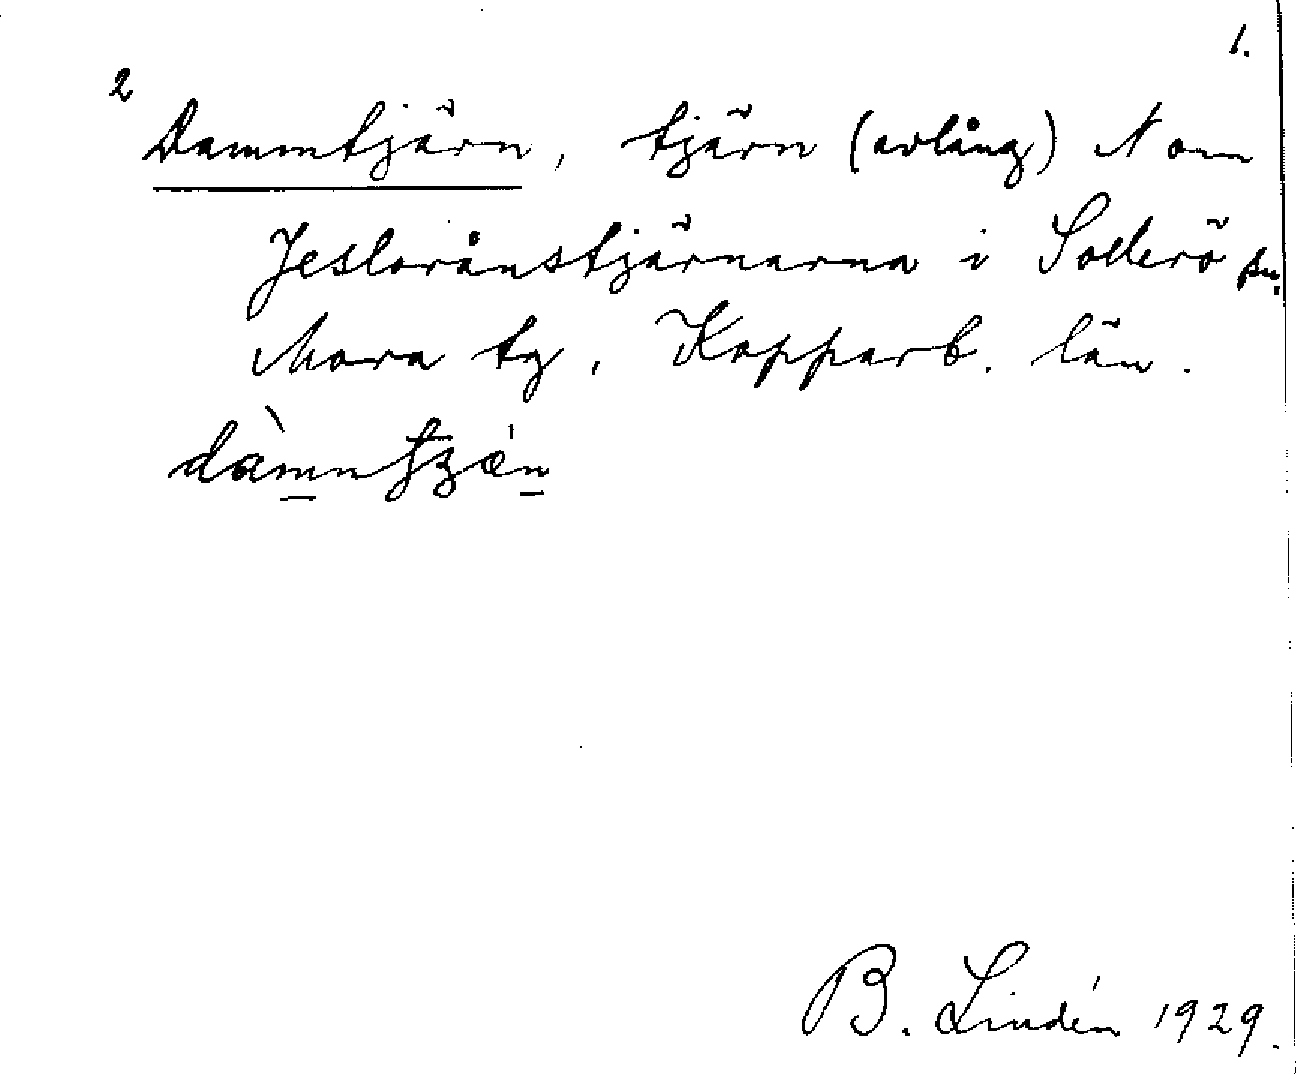 1.
2
Dammtjärn, tjärn (avlång) N om
Jesloränstjärnarna i Sollerö sn.
Mora tg, Kopparb. län.
B. Lindén 1929.